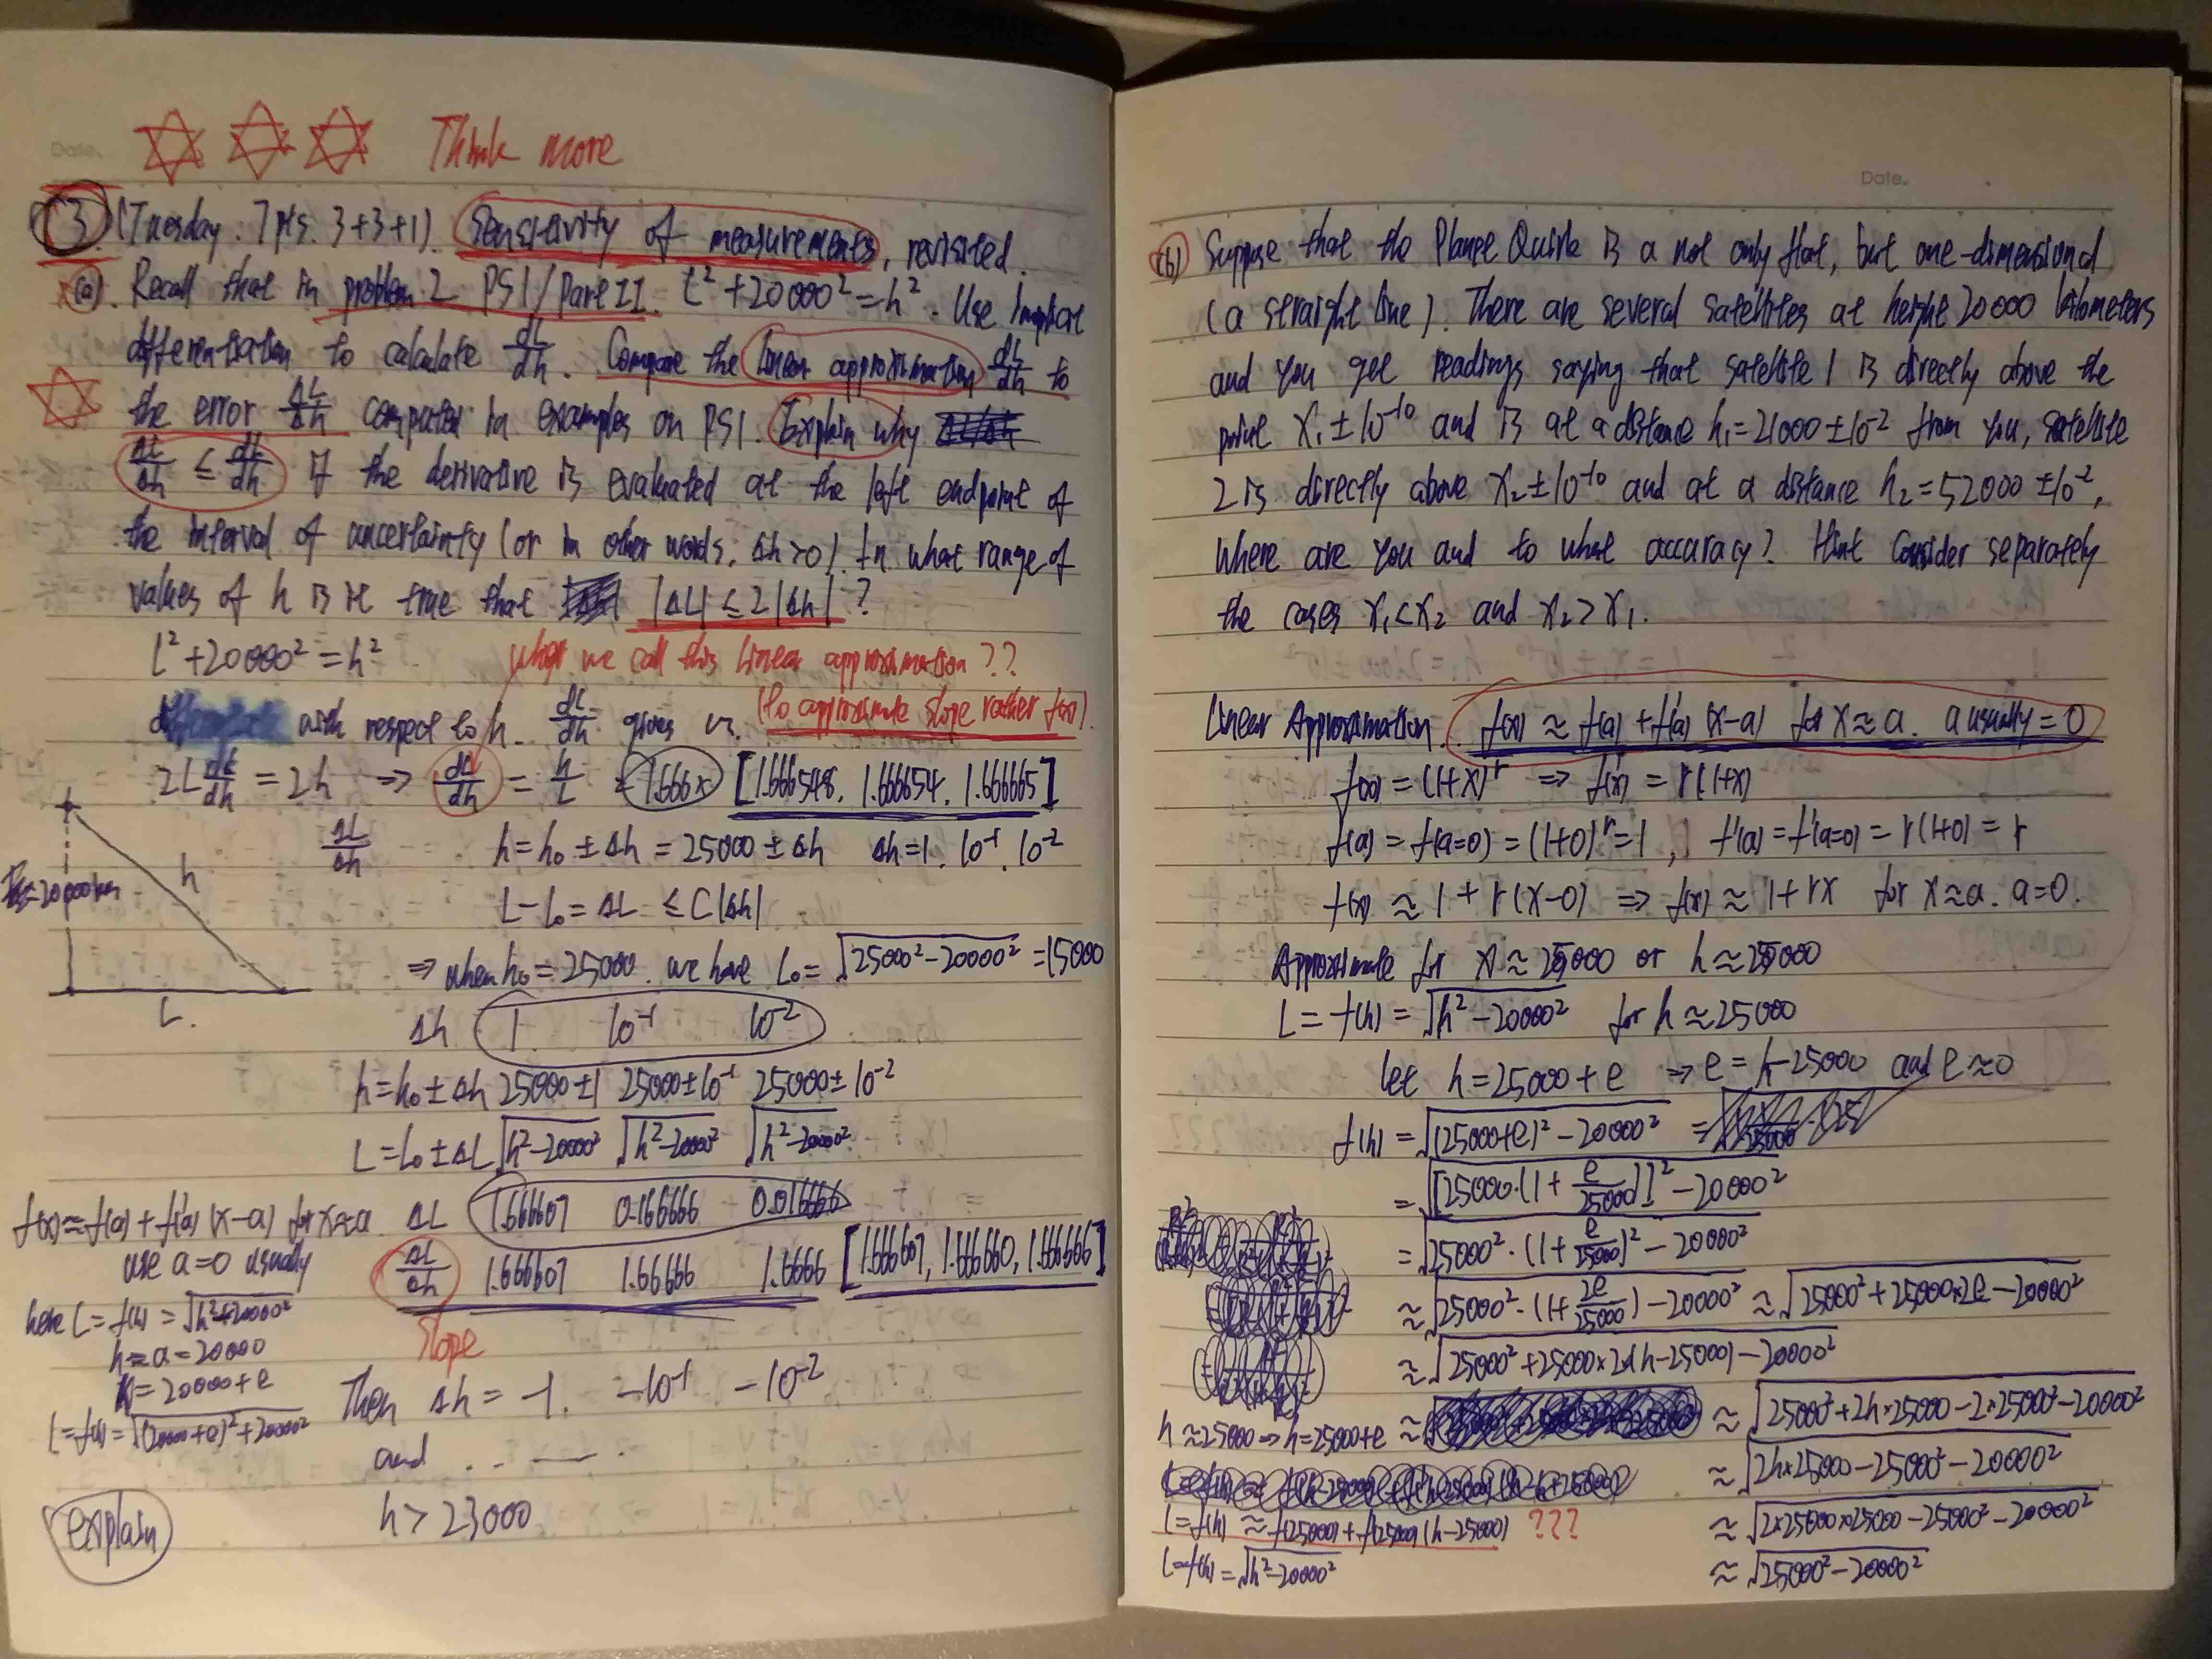 Date.
Think more
3. (Tuesday. 7 pts. 3+3+1). Sensitivity of measurements, revisited.
(a). Recall that in problem 2 PS1/Part II. L² + 20000² = h². Use implicit
differentiation to calculate dL/dh. Compare the linear approximation dL/dh to
the error ΔL/Δh computed in examples on PS1. Explain why
ΔL/Δh ≤ dL/dh if the derivative is evaluated at the left endpoint of
the interval of uncertainty (or in other words, Δh>0). In what range of
values of h is it true that |ΔL| ≤ 2|Δh| ?
L² + 20000² = h²
what we call this linear approximation ??
(to approximate slope rather f(x)).
with respect to h. dL/dh gives us.
2L dL/dh = 2h ⇒ dL/dh = h/L = 1.666x [1.6666548, 1.666654, 1.666665]
ΔL/Δh h = h₀ ± Δh = 25000 ± Δh Δh = 1. 10⁻¹. 10⁻²
h
L - L₀ = ΔL ≤ C|Δh|
=20000km
⇒ when h₀ = 25000. we have L₀ = √(25000² - 20000²) = 15000
L.
Δh 1 10⁻¹ 10⁻²
h = h₀ ± Δh 25000±1 25000±10⁻¹ 25000±10⁻²
L = L₀ ± ΔL √(h²-20000²) √(h²-20000²) √(h²-20000²)
f(x) ≈ f(a) + f'(a) (x-a) for x≈a.
use a=0 usually
ΔL 1.666607 0.166666 0.016666
ΔL/Δh 1.666607 1.66666 1.6666 [1.666607, 1.666660, 1.666666]
slope
here L = f(h) = √(h²+20000²)
h = a = 20000
= 20000+e
L = f(h) = √((20000+e)²+20000²)
Then Δh = -1. -10⁻¹ -10⁻²
and .. —— .
h > 23000
explain
Date.
(b) Suppose that the Planet Quirk is a not only flat, but one-dimensional
(a straight line). There are several satellites at height 20000 kilometers
and you get readings saying that satellite 1 is directly above the
point x₁ ± 10⁻¹⁰ and is at a distance h₁ = 21000 ± 10⁻² from you, satellite
2 is directly above x₂ ± 10⁻¹⁰ and at a distance h₂ = 52000 ± 10⁻².
Where are you and to what accuracy? Hint Consider separately
the cases x₁ < x₂ and x₂ > x₁.
Linear Approximation. f(x) ≈ f(a) + f'(a) (x-a) for x≈a. a usually = 0
f(x) = (1+x)ʳ ⇒ f'(x) = r(1+x)
f(a) = f(a=0) = (1+0)ʳ = 1, f'(a) = f'(a=0) = r(1+0) = r
f(x) ≈ 1 + r(x-0) ⇒ f(x) ≈ 1+rx for x≈a. a=0.
Approximate for x≈25000 or h≈25000
L = f(h) = √(h²-20000²) for h≈25000
let h = 25000+e ⇒ e = h-25000 and e≈0
f(h) = √((25000+e)² - 20000²) =
= √([25000·(1+e/25000)]² - 20000²)
= √(25000²·(1+e/25000)² - 20000²)
≈ √(25000²·(1+2e/25000) - 20000²) ≈ √(25000² + 25000×2e - 20000²)
≈ √(25000² + 25000×2×(h-25000) - 20000²)
h≈25000 ⇒ h=25000+e ≈ ≈ √(25000² + 2h×25000 - 2×25000² - 20000²)
≈ √(2h×25000 - 25000² - 20000²)
L = f(h) ≈ f(25000) + f'(25000) (h-25000) ???
≈ √(2×25000×25000 - 25000² - 20000²)
L = f(h) = √(h²-20000²)
≈ √(25000² - 20000²)